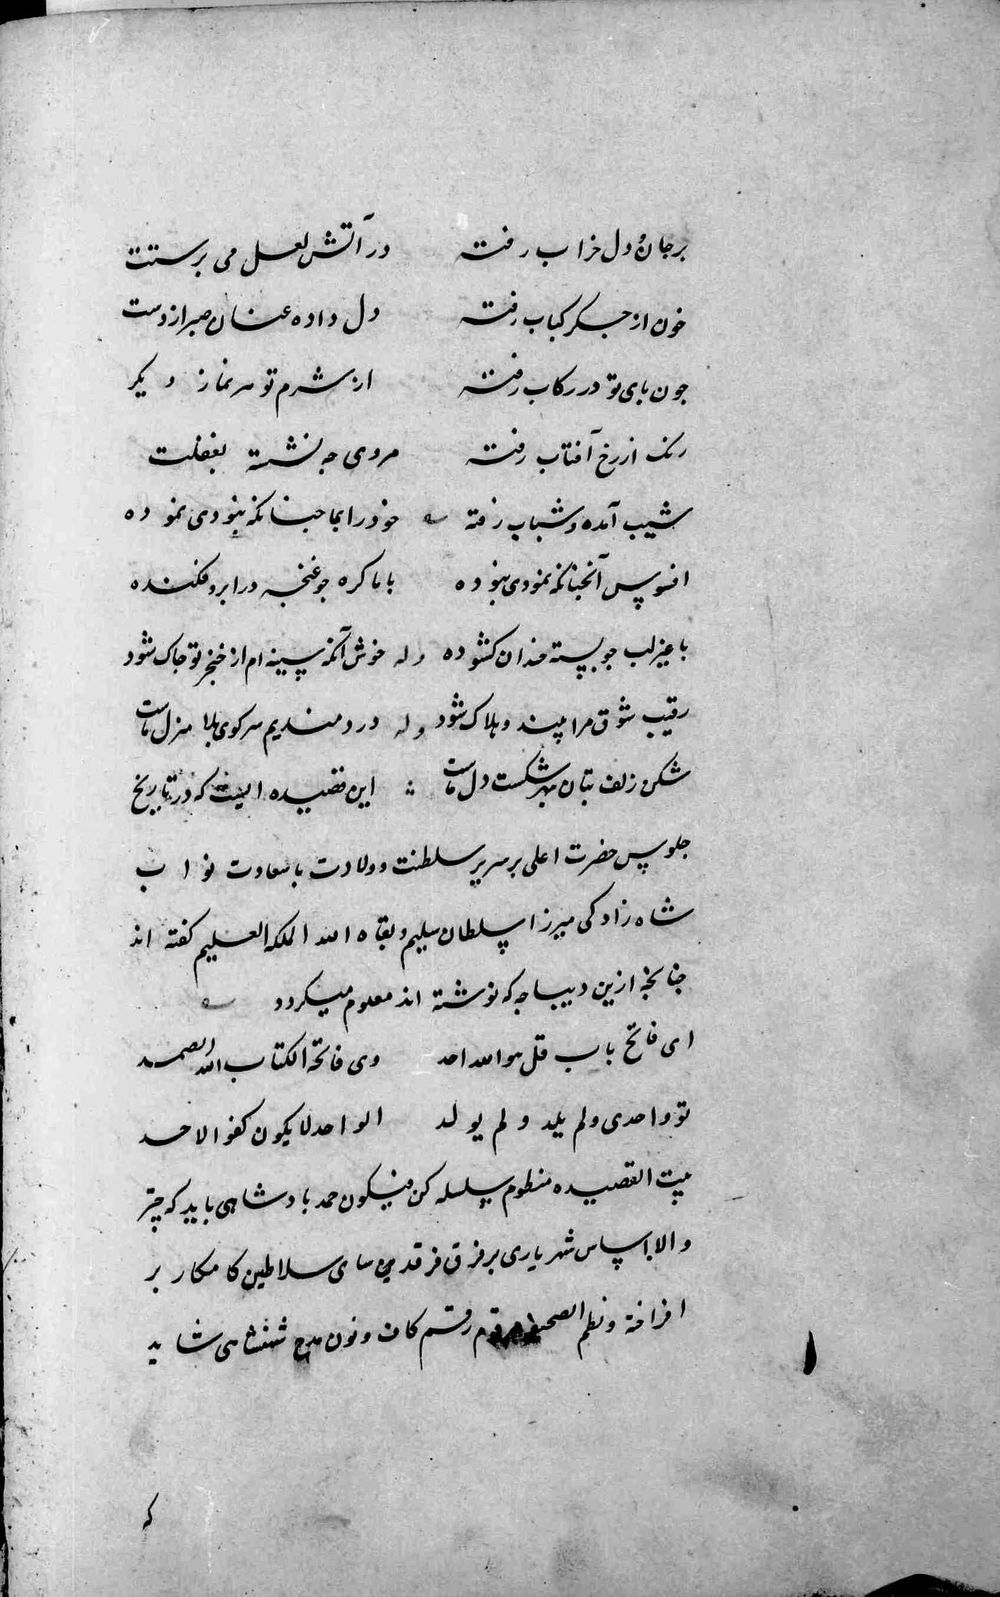 بر جان و دل خراب رفته در آتش لعل می پرستت
خون از جگر کباب رفته دل داده عنان صبر از دست
چون پای تو در رکاب رفته از شرم تو هر نماز دیگر
رنگ از رخ آفتاب رفته مروی چه نشسته بغفلت
شیب آمده و شباب رفته خود را بما چنانکه نبودی نموده
افسوس آنچنانکه نمودی نبوده با ما گره چو غنچه در ابرو فکنده
با غیر لب چو پسته خندان گشوده وله خوش آنکه سینه ام از خنجر تو چاک شود
رقیب شوق مرا بیند و هلاک شود وله دردمندیم سر کوی بلا منزل ماست
شکن زلف بتان بهر شکست دل ماست این قصیده ایست که در تاریخ
جلوس حضرت اعلی بر سریر سلطنت و ولادت با سعادت نواب
شاه زادگی میرزا سلطان سلیم و بقاه الله الملک العلیم گفته اند
چنانچه ازین دیباجه که نوشته اند معلوم میگردد
ای فاتح باب قل هو الله احد وی فاتحة الکتاب الله الصمد
تو واحدی و لم یلد و لم یولد الواحد لا یکون کفوا لاحد
بیت القصیده منظوم سلسله کن فیکون حمد بادشاهی باید که چتر
والا اساس شهریاری بر فرق فرقد سای سلاطین کامکار بر
افراخته و نظم الصحیفه مرقوم رقم کاف و نون مدح شهنشاهی شاید
که